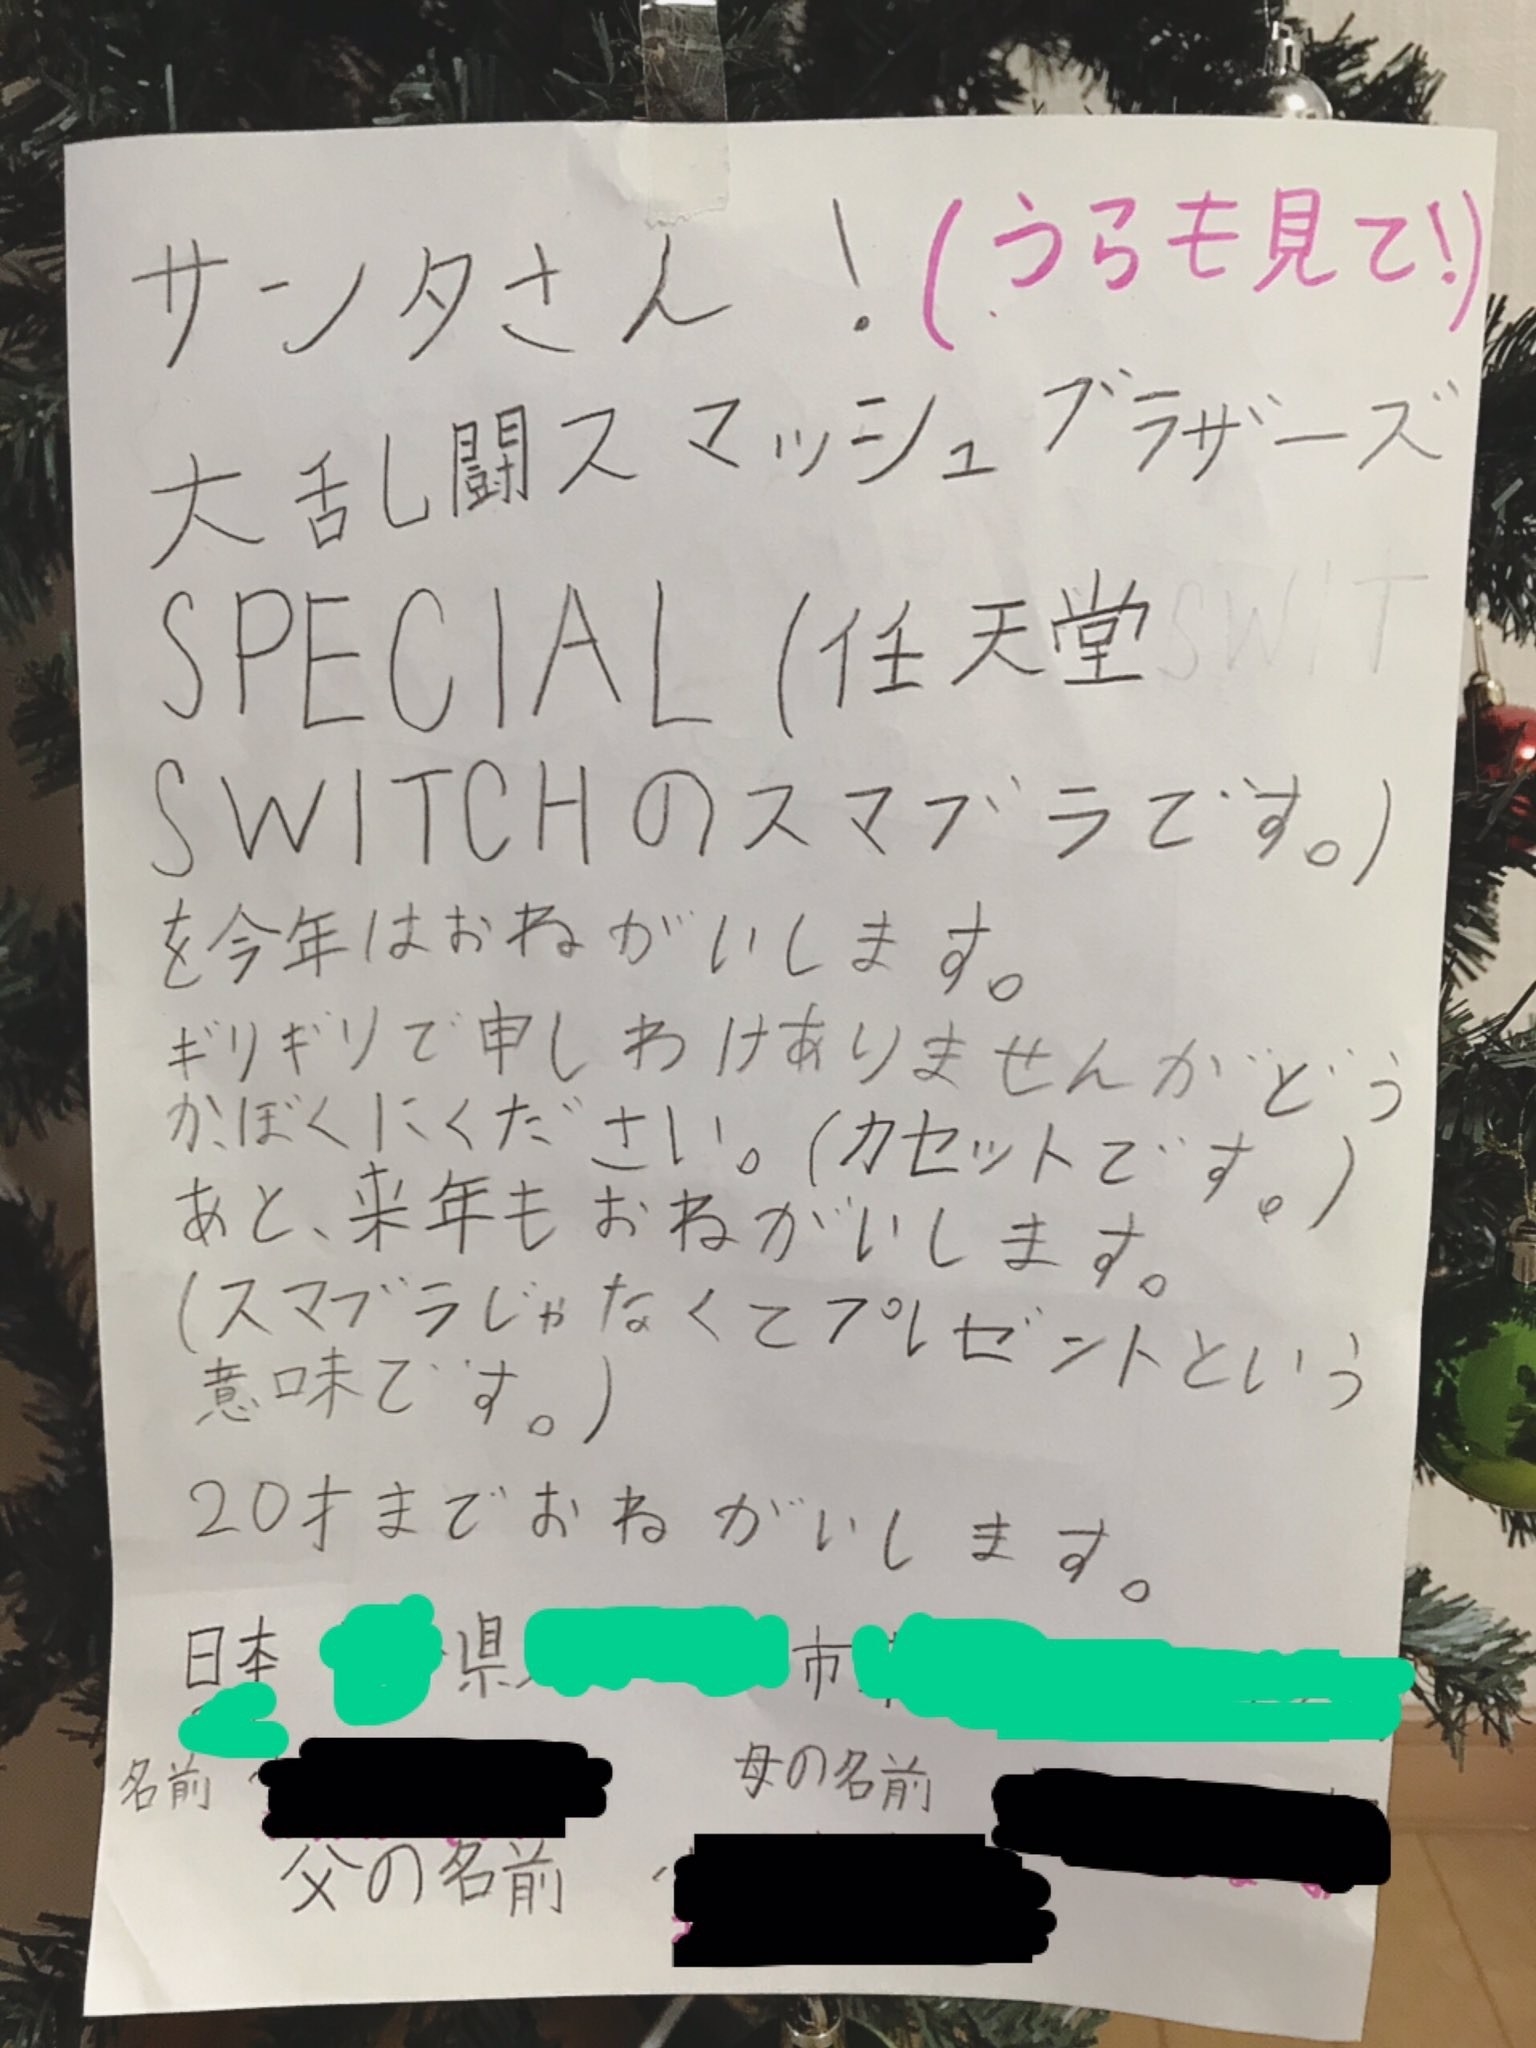 サンタさん！(うらも見て!)
大乱闘スマッシュブラザーズ
SPECIAL (任天堂 SWIT
SWITCHのスマブラです。)
を今年はおねがいします。
ギリギリで申しわけありませんがどう
か、ぼくにください。(カセットです。)
あと、来年もおねがいします。
(スマブラじゃなくてプレゼントという
意味です。)
20才までおねがいします。
日本 県 市
名前 母の名前
父の名前